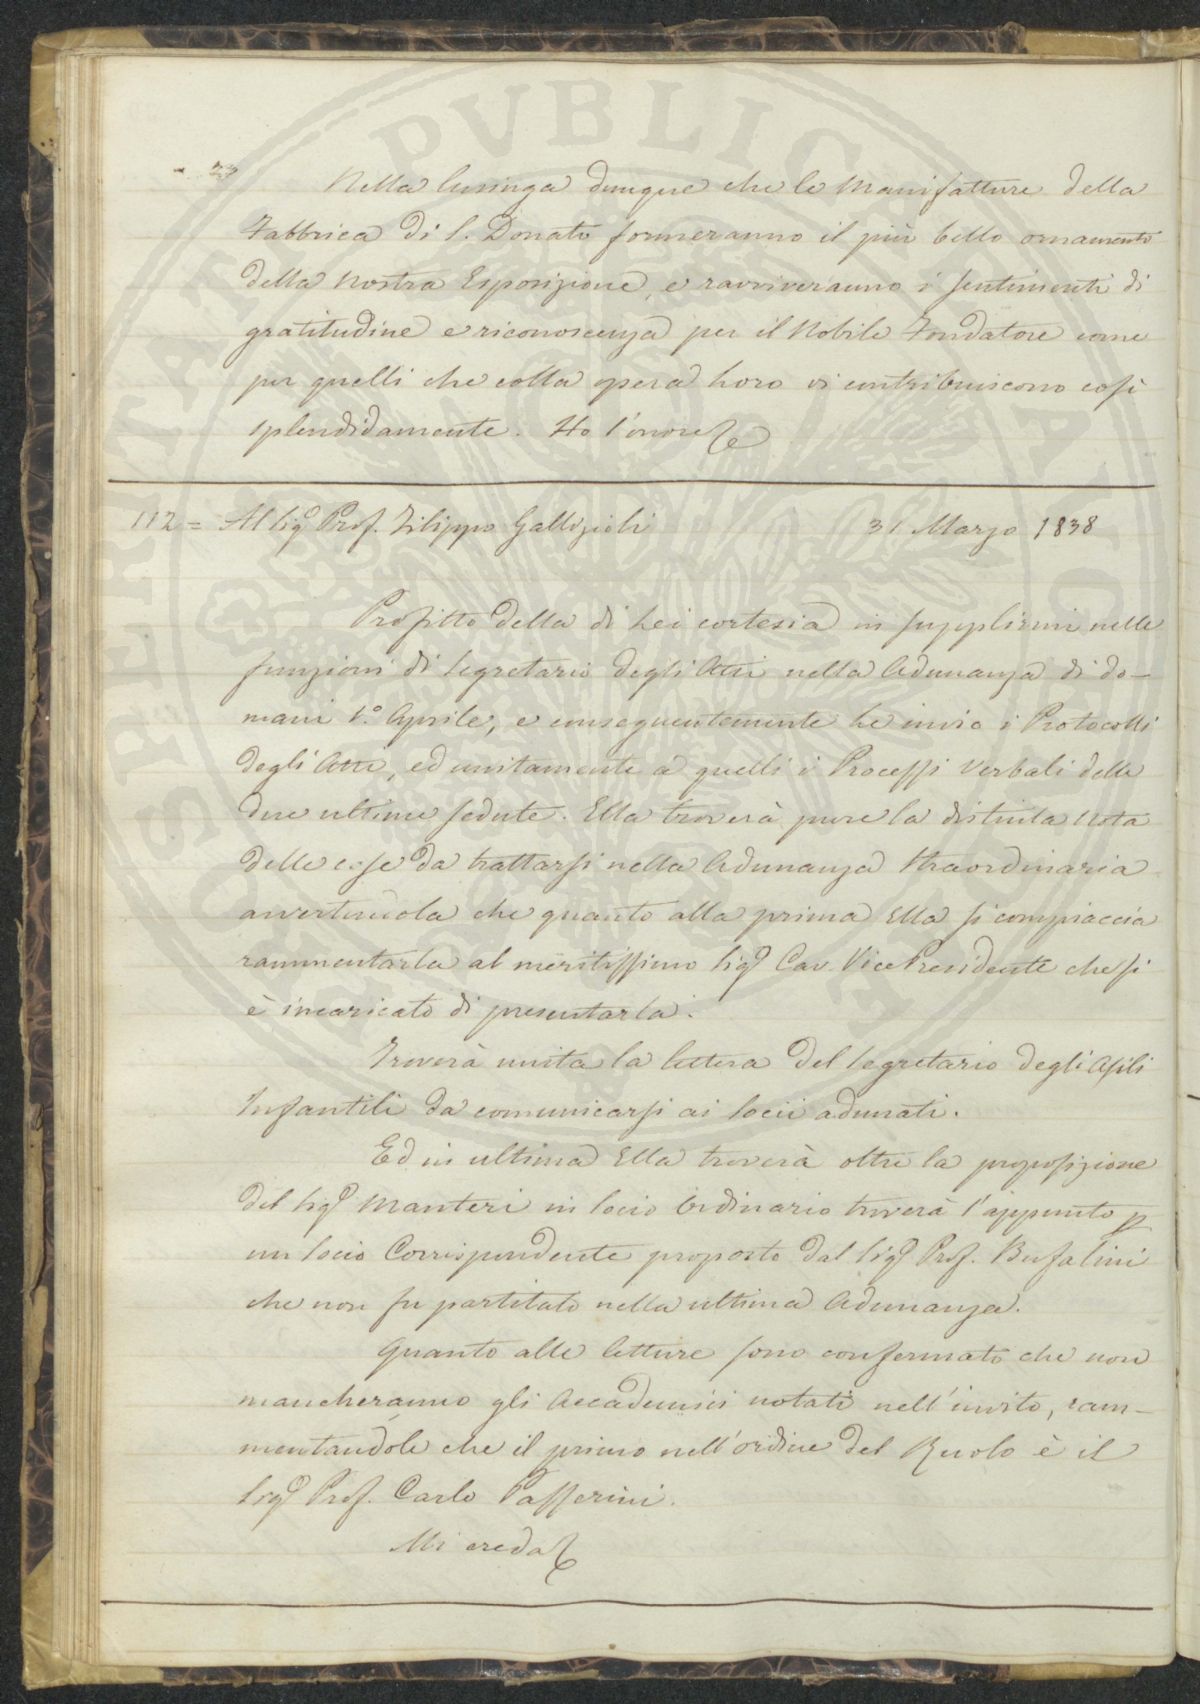 Nella lusinga dunque che le Manifatture della
Fabbrica di S. Donato formeranno il più bello ornamento
della nostra Esposizione, e ravviveranno i sentimenti di
gratitudine e riconoscenza per il Nobile Fondatore come
per quelli che colla opera Loro vi contribuiscono così
splendidamente. Ho l'onore &c
112 = Al Sigr Prof. Filippo Gallizioli 31 Marzo 1838
Profitto della di Lei cortesia in supplirmi nelle
funzioni di Segretario degli Atti nella Adunanza di do-
mani 1.o Aprile, e conseguentemente Le invio i Protocolli
degli Atti, ed unitamente a quelli i Processi Verbali delle
due ultime sedute. Ella troverà pure la distinta Nota
delle cose da trattarsi nella Adunanza Straordinaria
avvertendola che quanto alla prima Ella si compiaccia
rammentarla al meritissimo Sigr Cav. VicePresidente che si
è incaricato di presentarla.
Troverà unita la lettera del Segretario degli Asili
Infantili da comunicarsi ai Socii adunati.
Ed in ultima Ella troverà oltre la proposizione
del Sigr Manteri in Socio Ordinario troverà l'appunto p
un Socio Corrispondente proposto dal Sigr Prof. Bufalini
che non fu partitato nella ultima Adunanza.
Quanto alle letture sono confermato che non
mancheranno gli Accademici notati nell'invito, ram-
mentandole che il primo nell'ordine del Ruolo è il
Sigr Prof. Carlo Passerini.
Mi creda &c